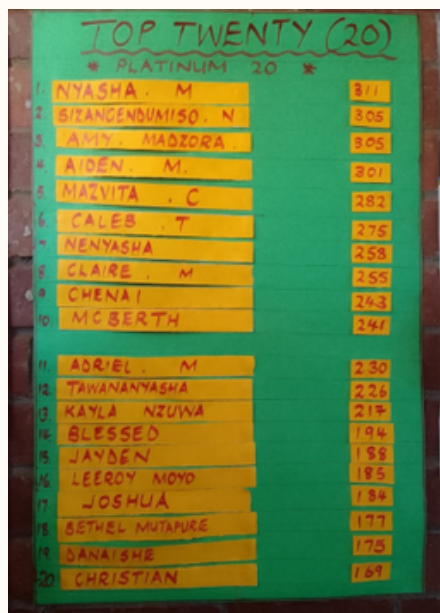 TOP TWENTY (20)
* PLATINUM 20 *
1. NYASHA . M 311
2. SIZANGENDUMISO . N 305
3. AMY . MADZORA . 305
4. AIDEN . M. 301
5. MAZVITA . C 282
6. CALEB . T 275
7. NENYASHA 258
8. CLAIRE . M 255
9 CHENAI 243
10. MCBERTH 241
11. ADRIEL . M 230
12. TAWANANYASHA 226
13. KAYLA NZUWA 217
14. BLESSED 194
15. JAYDEN 188
16. LEEROY MOYO 185
17. JOSHUA 184
18. BETHEL MUTAPURE 177
19. DANAISHE 175
20 CHRISTIAN 169